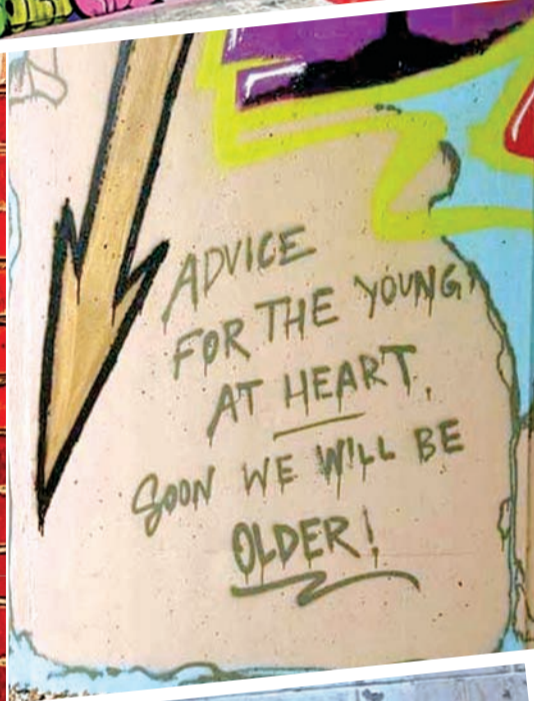 ADVICE
FOR THE YOUNG
AT HEART,
SOON WE WILL BE
OLDER!